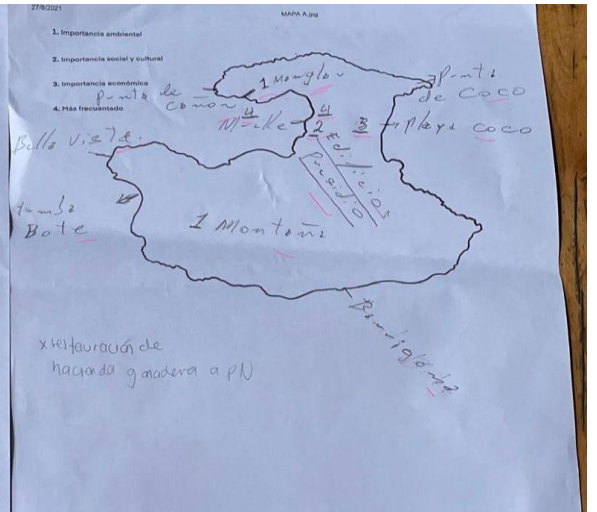 27/8/2021
MAPA A.jpg
1. Importancia ambiental
2. Importancia social y cultural
3. Importancia económica
4. Más frecuentado
Punta de
1 Manglar
Punta
de Coco
4
Muelle
4
2
3
Playa Coco
Bella vista.
Edificios
Presidio
tumba
Bote
1 Montaña
Barrigona
x restauración de
hacienda ganadera a PN